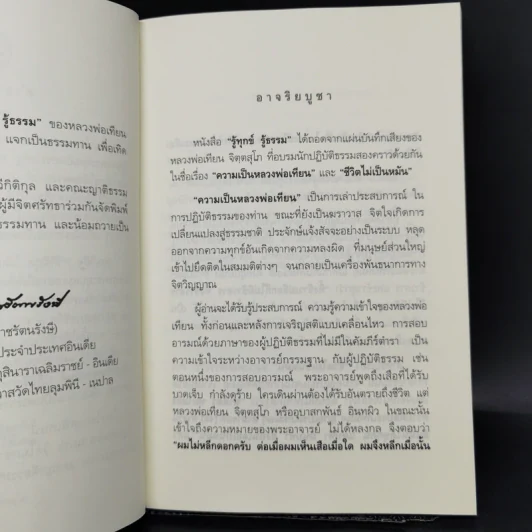 รู้ธรรม" ของหลวงพ่อเทียน
แจกเป็นธรรมทาน เพื่อเทิด
วีกิติกุล และคณะญาติธรรม
ผู้มีจิตศรัทธาร่วมกันจัดพิมพ์
ธรรมทาน และน้อมถวายเป็น
าชรัตนรังษี)
ประจำประเทศอินเดีย
กุสินาราเฉลิมราชย์ - อินเดีย
าสวัดไทยลุมพินี - เนปาล
อาจริยบูชา
หนังสือ "รู้ทุกข์ รู้ธรรม" ได้ถอดจากแผ่นบันทึกเสียงของ
หลวงพ่อเทียน จิตฺตสุโภ ที่อบรมนักปฏิบัติธรรมสองคราวด้วยกัน
ในชื่อเรื่อง "ความเป็นหลวงพ่อเทียน" และ "ชีวิตไม่เป็นหมัน"
"ความเป็นหลวงพ่อเทียน" เป็นการเล่าประสบการณ์ ใน
การปฏิบัติธรรมของท่าน ขณะที่ยังเป็นฆราวาส จิตใจเกิดการ
เปลี่ยนแปลงสู่ธรรมชาติ ประจักษ์แจ้งสัจจะอย่างเป็นระบบ หลุด
ออกจากความทุกข์อันเกิดจากความหลงผิด ที่มนุษย์ส่วนใหญ่
เข้าไปยึดติดในสมมติต่างๆ จนกลายเป็นเครื่องพันธนาการทาง
จิตวิญญาณ
ผู้อ่านจะได้รับรู้ประสบการณ์ ความรู้ความเข้าใจของหลวงพ่อ
เทียน ทั้งก่อนและหลังการเจริญสติแบบเคลื่อนไหว การสอบ
อารมณ์ด้วยภาษาของผู้ปฏิบัติธรรมที่ไม่มีในคัมภีร์ตำรา เป็น
ความเข้าใจระหว่างอาจารย์กรรมฐาน กับผู้ปฏิบัติธรรม เช่น
ตอนหนึ่งของการสอบอารมณ์ พระอาจารย์พูดถึงเสือที่ได้รับ
บาดเจ็บ กำลังดุร้าย ใครเดินผ่านต้องได้รับอันตรายถึงชีวิต แต่
หลวงพ่อเทียน จิตฺตสุโภ หรืออุบาสกพันธ์ อินทผิว ในขณะนั้น
เข้าใจถึงความหมายของพระอาจารย์ ไม่ได้หลงกล จึงตอบว่า
"ผมไม่หลีกดอกครับ ต่อเมื่อผมเห็นเสือเมื่อใด ผมจึงหลีกเมื่อนั้น